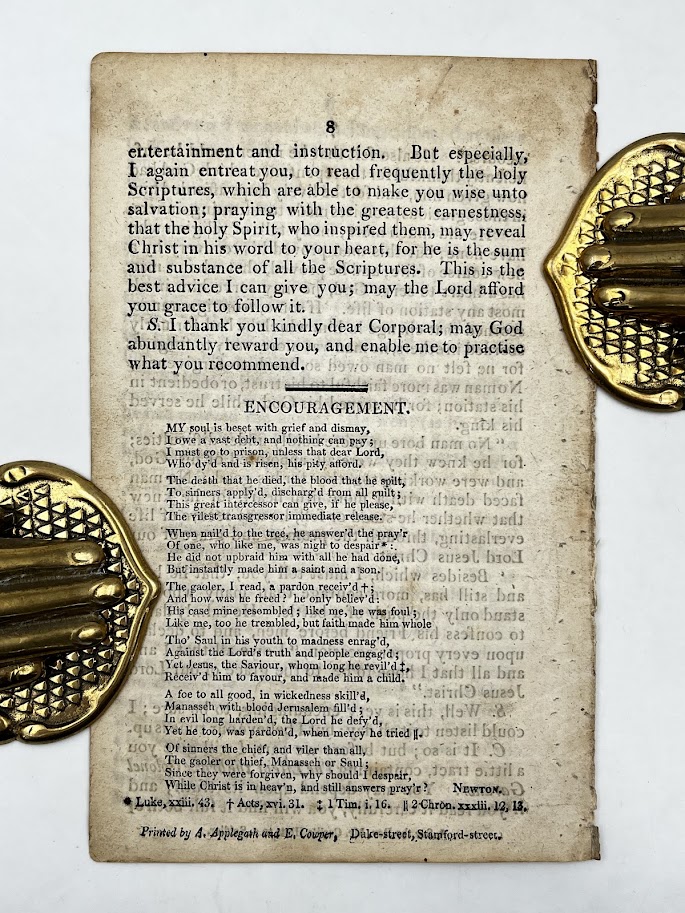 8
entertainment and instruction. But especially,
I again entreat you, to read frequently the holy
Scriptures, which are able to make you wise unto
salvation; praying with the greatest earnestness,
that the holy Spirit, who inspired them, may reveal
Christ in his word to your heart, for he is the sum
and substance of all the Scriptures. This is the
best advice I can give you; may the Lord afford
you grace to follow it.
S. I thank you kindly dear Corporal; may God
abundantly reward you, and enable me to practise
what you recommend.
ENCOURAGEMENT.
MY soul is beset with grief and dismay,
I owe a vast debt, and nothing can pay;
I must go to prison, unless that dear Lord,
Who dy'd and is risen, his pity afford.
The death that he died, the blood that he spilt,
To sinners apply'd, discharg'd from all guilt;
This great intercessor can give, if he please,
The vilest transgressor immediate release.
When nail'd to the tree, he answer'd the pray'r
Of one, who like me, was nigh to despair*:
He did not upbraid him with all he had done,
But instantly made him a saint and a son.
The gaoler, I read, a pardon receiv'd†;
And how was he freed? he only believ'd:
His case mine resembled; like me, he was foul;
Like me, too he trembled, but faith made him whole
Tho' Saul in his youth to madness enrag'd,
Against the Lord's truth and people engag'd;
Yet Jesus, the Saviour, whom long he revil'd‡,
Receiv'd him to favour, and made him a child.
A foe to all good, in wickedness skill'd,
Manasseh with blood Jerusalem fill'd;
In evil long harden'd, the Lord he defy'd,
Yet he too, was pardon'd, when mercy he tried‖.
Of sinners the chief, and viler than all,
The gaoler or thief, Manasseh or Saul;
Since they were forgiven, why should I despair,
While Christ is in heav'n, and still answers pray'r? NEWTON.
* Luke, xxiii. 43. † Acts, xvi. 31. ‡ 1 Tim. i. 16. ‖ 2 Chron. xxxiii. 12, 13.
Printed by A. Applegath and E. Cowper, Duke-street, Stamford-street.